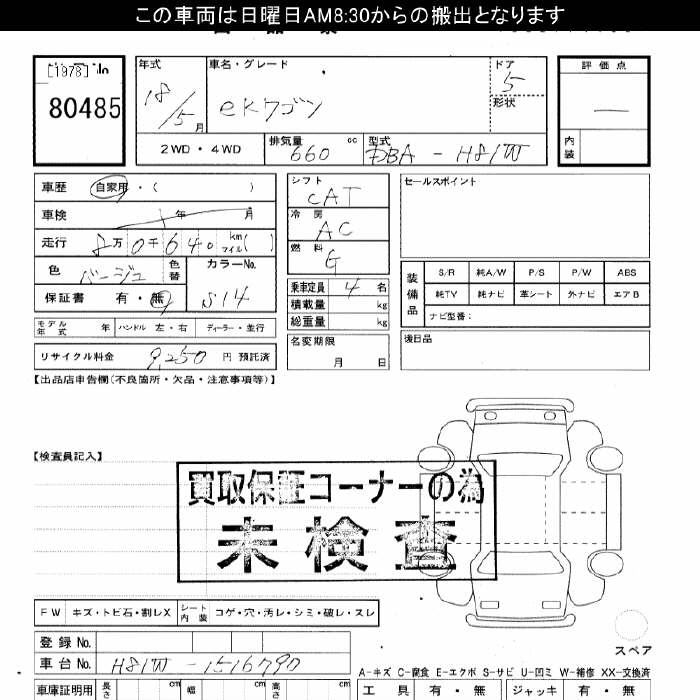 この車両は日曜日AM8:30からの搬出となります
[1978] No
80485
年式
18/5月
車名・グレード
eKワゴン
ドア
5
形状
評価点
―
内装
2WD・4WD
排気量
660 cc
型式
DBA - H81W
車歴 自家用・( )
車検 年 月
走行 8万0千640 km マイル( )
色 ベージュ 色替
カラーNo. S14
保証書 有・無
モデル年式 年 ハンドル 左・右 ディーラー・並行
リサイクル料金 9,250 円 預託済
シフト
CAT
冷房
AC
燃料
G
乗車定員 4 名
積載量 kg
総重量 kg
名変期限
月 日
セールスポイント
装備品
S/R 純A/W P/S P/W ABS
純TV 純ナビ 革シート 外ナビ エアB
ナビ型番:
後日品
【出品店申告欄(不良箇所・欠品・注意事項等)】
【検査員記入】
買取保証コーナーの為
未検査
FW キズ・トビ石・割レX シート内装 コゲ・穴・汚レ・シミ・破レ・スレ
登録No.
車台No. H81W-1516790
スペア
A-キズ C-腐食 E-エクボ S-サビ U-凹ミ W-補修 XX-交換済
車庫証明用 長さ cm 幅 cm 高さ cm
工具 有・無 ジャッキ 有・無